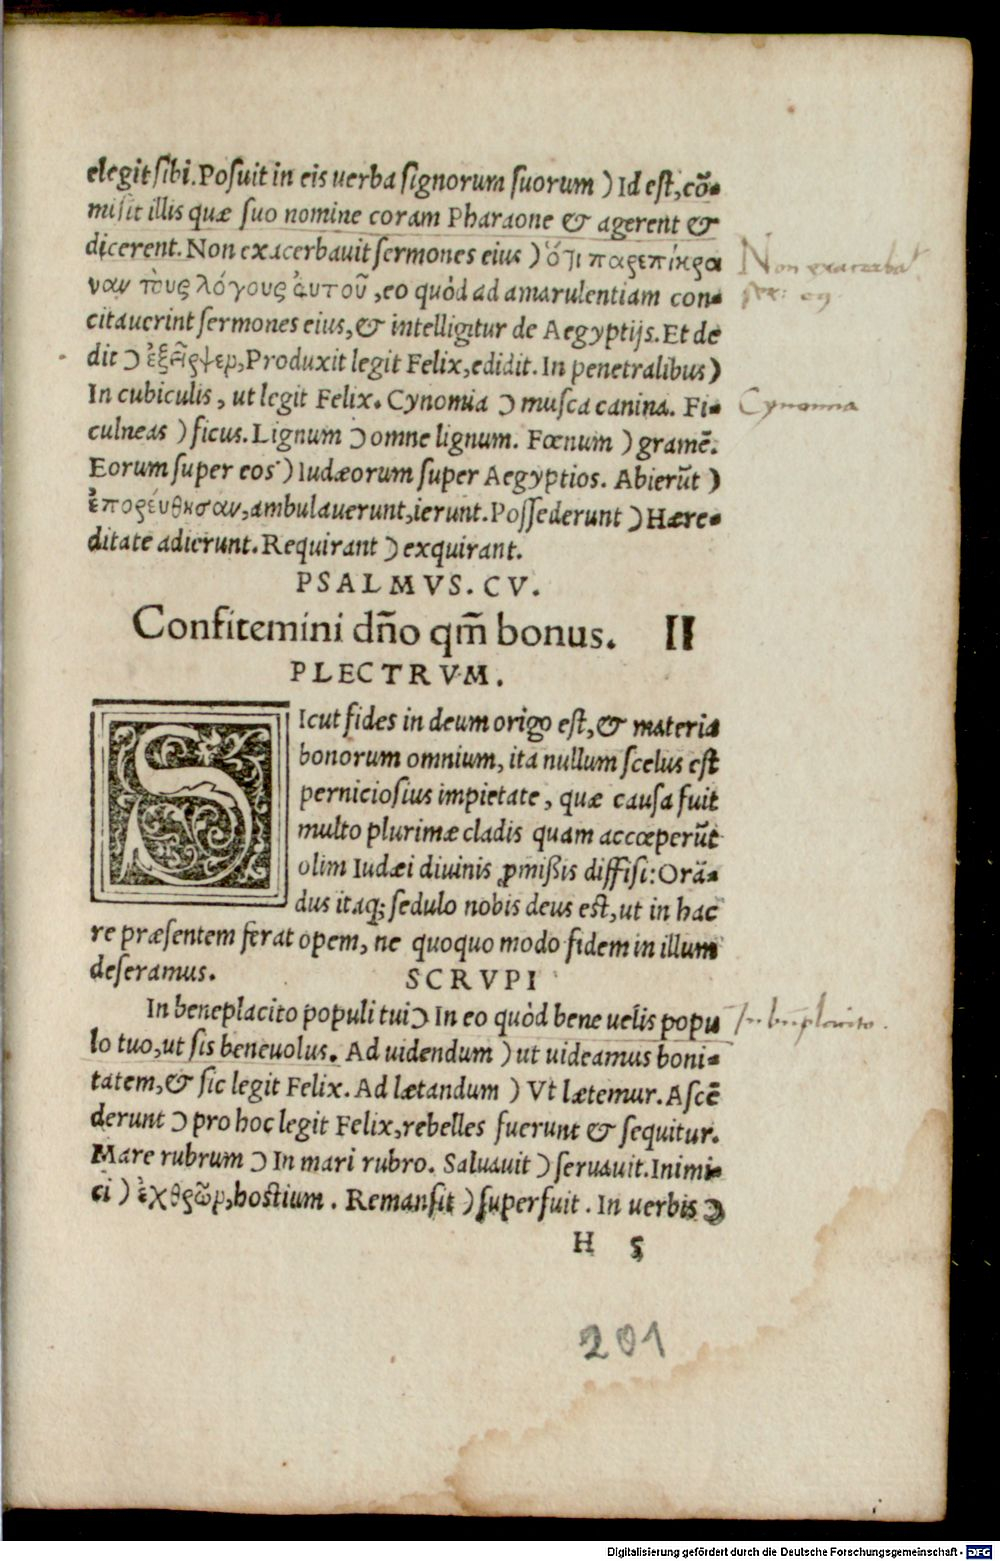 elegit sibi. Posuit in eis uerba signorum suorum ) Id est, cō-
misit illis quæ suo nomine coram Pharaone & agerent &
dicerent. Non exacerbauit sermones eius ) ὅτι παρεπίκρα Non exacerbat
ναν τοὺς λόγους ἀυτοῦ, eo quòd ad amarulentiam con-
citauerint sermones eius, & intelligitur de Aegyptijs. Et de
dit Ɔ ἐξῆρψεν, Produxit legit Felix, edidit. In penetralibus )
In cubiculis, ut legit Felix. Cynomia Ɔ musca canina. Fi- Cynomia
culneas ) ficus. Lignum Ɔ omne lignum. Fœnum ) gramē.
Eorum super eos ) Iudæorum super Aegyptios. Abierūt )
ἐπορέυθησαν, ambulauerunt, ierunt. Possederunt ) Hære-
ditate adierunt. Requirant Ɔ exquirant.
PSALMVS. CV.
Confitemini dño qm̃ bonus. II
PLECTRVM.
SIcut fides in deum origo est, & materia
bonorum omnium, ita nullum scelus est
perniciosius impietate, quæ causa fuit
multo plurimæ cladis quam accœperūt
olim Iudæi diuinis ꝓmißis diffisi: Orā-
dus itaq; sedulo nobis deus est, ut in hac
re præsentem ferat opem, ne quoquo modo fidem in illum
deseramus. SCRVPI
In beneplacito populi tui Ɔ In eo quòd bene uelis popu In beneplacito.
lo tuo, ut sis beneuolus. Ad uidendum ) ut uideamus boni-
tatem, & sic legit Felix. Ad lætandum ) Vt lætemur. Ascē
derunt Ɔ pro hoc legit Felix, rebelles fuerunt & sequitur.
Mare rubrum Ɔ In mari rubro. Saluauit ) seruauit. Inimi-
ci ) ἐχθρῶν, hostium. Remansit ) superfuit. In uerbis Ɔ
H 5
201
Digitalisierung gefördert durch die Deutsche Forschungsgemeinschaft - DFG